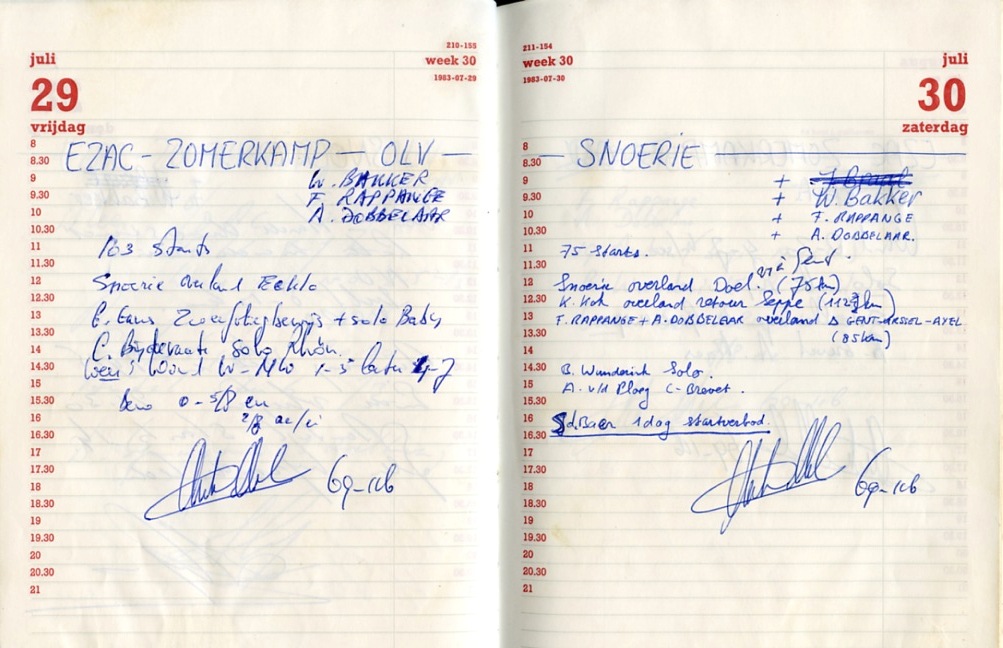 juli
210-155
week 30
1983-07-29
29
vrijdag
8
8.30 EZAC - ZOMERKAMP — OLV —
9 W. BAKKER
9.30 F. RAPPANGE
10 A. DOBBELAAR
10.30
11 163 starts
11.30
12 Snoerie overland Eeklo
12.30
13 + solo Baby
13.30
14 C. solo Rhön.
14.30 Wind W-NW 1-3 later
15
15.30 0-5/8 cu
16 2/8 ac/ci
16.30
17
17.30
18
18.30
19
19.30
20
20.30
21
211-154
week 30
1983-07-30
juli
30
zaterdag
8
8.30 — SNOERIE —
9 +
9.30 + W. Bakker
10 + F. RAPPANGE
10.30 + A. DOBBELAAR.
11 75 starts.
11.30 via Gent.
12 Snoerie overland Doel. (75km)
12.30 K. Kok overland retour Seppe (112 km)
13 F. RAPPANGE + A. DOBBELAAR overland Δ GENT-URSEL-AXEL
13.30 (85km)
14
14.30 B. Wunderink Solo.
15 A. v/d Ploeg C-Brevet.
15.30
16
16.30 Baer 1 dag startverbod.
17
17.30
18
18.30
19
19.30
20
20.30
21